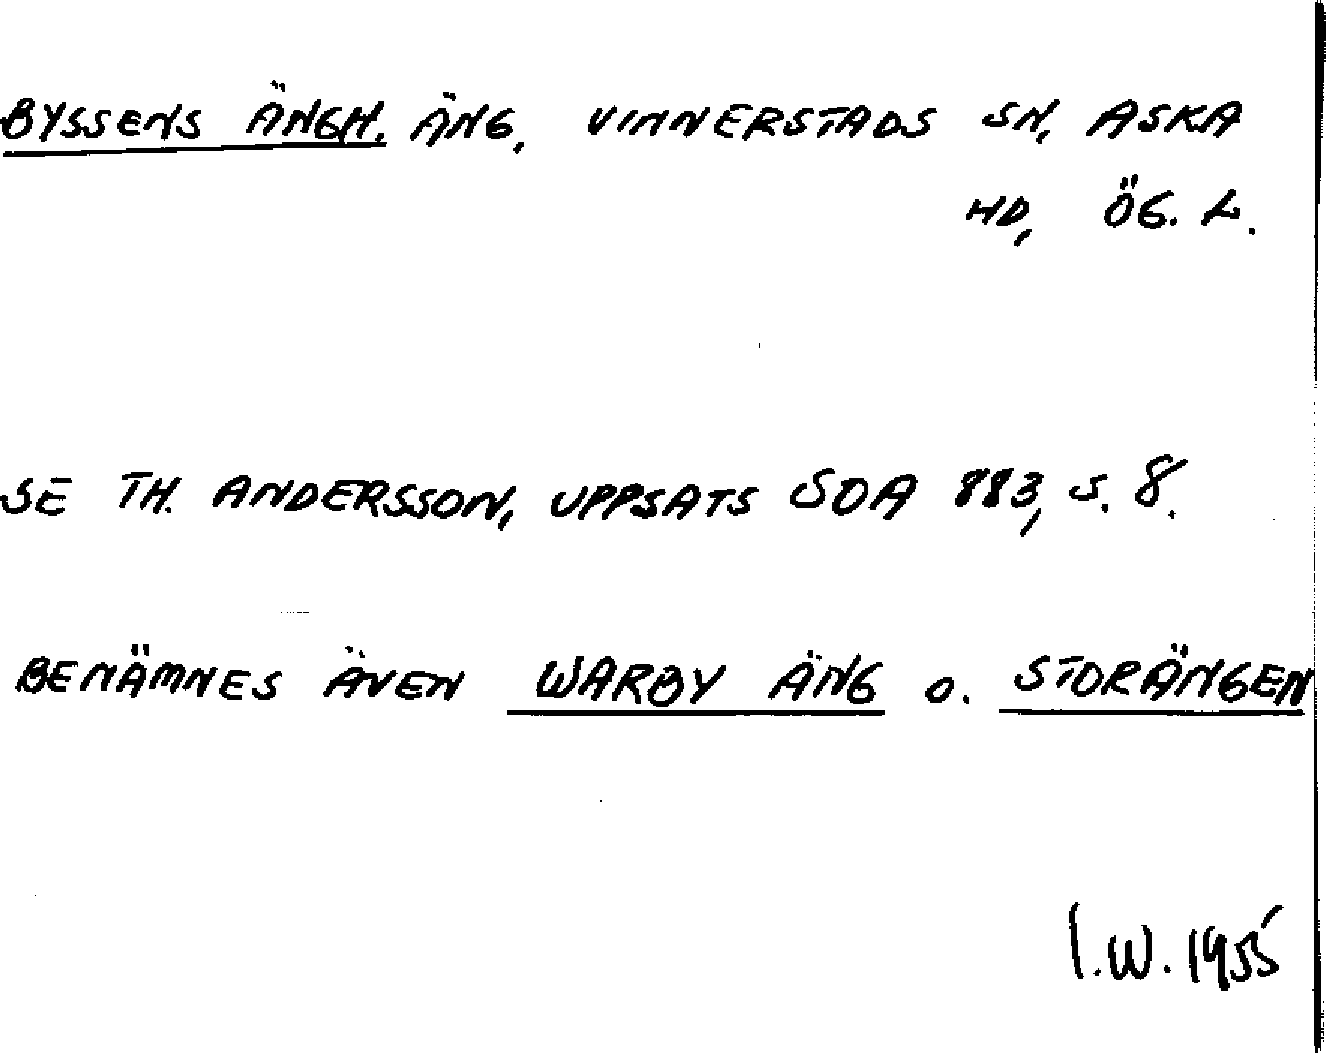 BYSSENS ÄNGH. ÄNG, VINNERSTADS SN, ASKA
HD, ÖG. L.
SE TH. ANDERSSON, UPPSATS SOA 883, S. 8.
BENÄMNES ÄVEN WARBY ÄNG O. STORÄNGEN
I.W. 1955